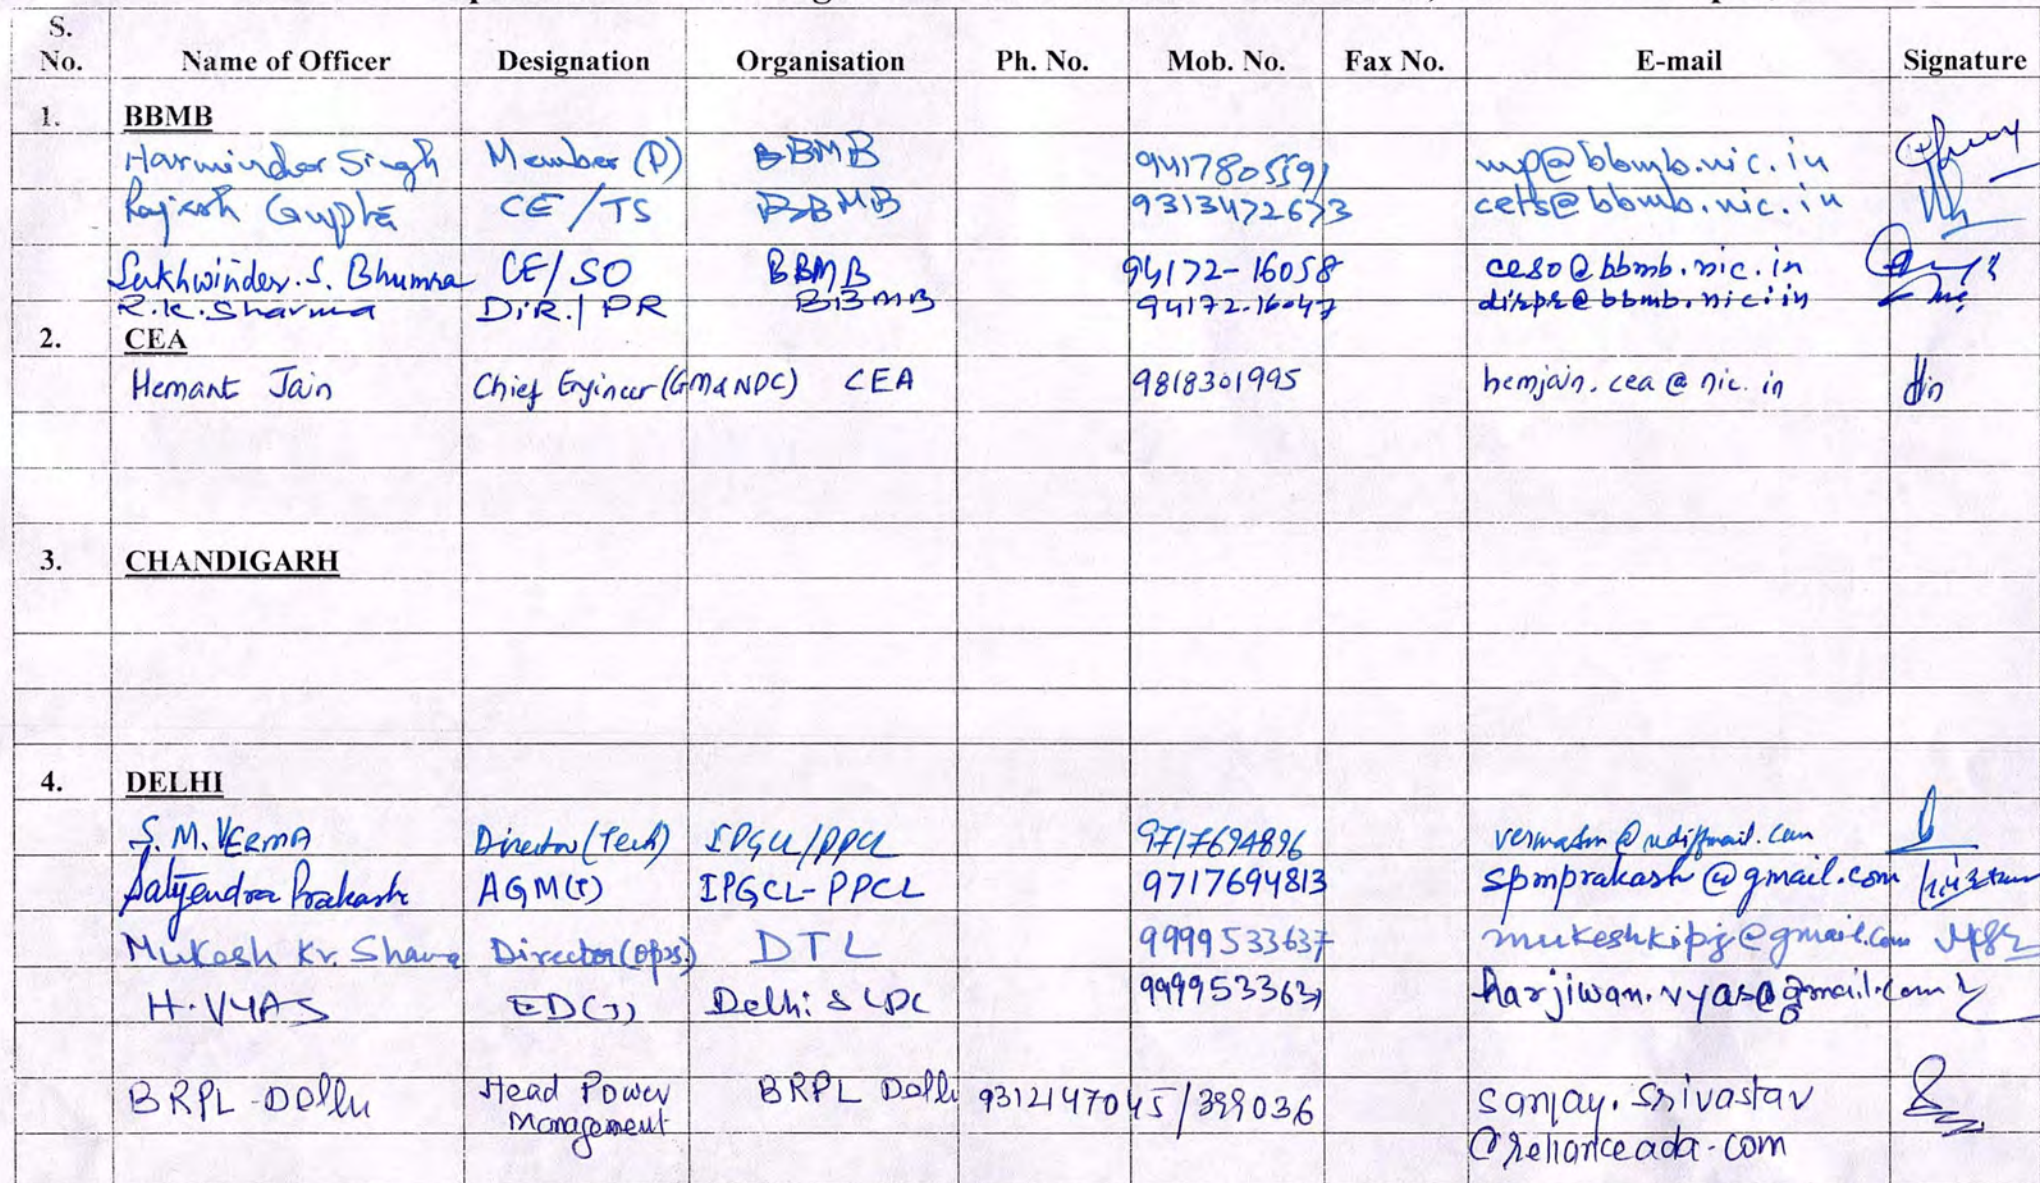 S.
No. Name of Officer Designation Organisation Ph. No. Mob. No. Fax No. E-mail Signature
1. BBMB
Harminder Singh Member (P) BBMB 9417805591 mp@bbmb.nic.in
Rajesh Gupta CE/TS BBMB 9313472673 cets@bbmb.nic.in
Sukhwinder.S. Bhumra CE/SO BBMB 94172-16058 ceso@bbmb.nic.in
R.K.Sharma DiR./PR BBMB 94172-16047 dirpr@bbmb.nic.in
2. CEA
Hemant Jain Chief Engineer (GM&NPC) CEA 9818301995 hemjain.cea@nic.in
3. CHANDIGARH
4. DELHI
S.M. VERMA Director (Tech) IPGCL/PPCL 9717694896 vermasm@rediffmail.com
Satyendra Prakash AGM(T) IPGCL-PPCL 9717694813 spmprakash@gmail.com
Mukesh Kr. Sharma Director(Opns) DTL 9999533637 mukeshkipg@gmail.com
H. VYAS Delhi SLDC harjiwan.vyas@gmail.com
BRPL Delhi Head Power BRPL Delhi 9312147045/399036 sanjay.srivastav
Management @relianceada.com